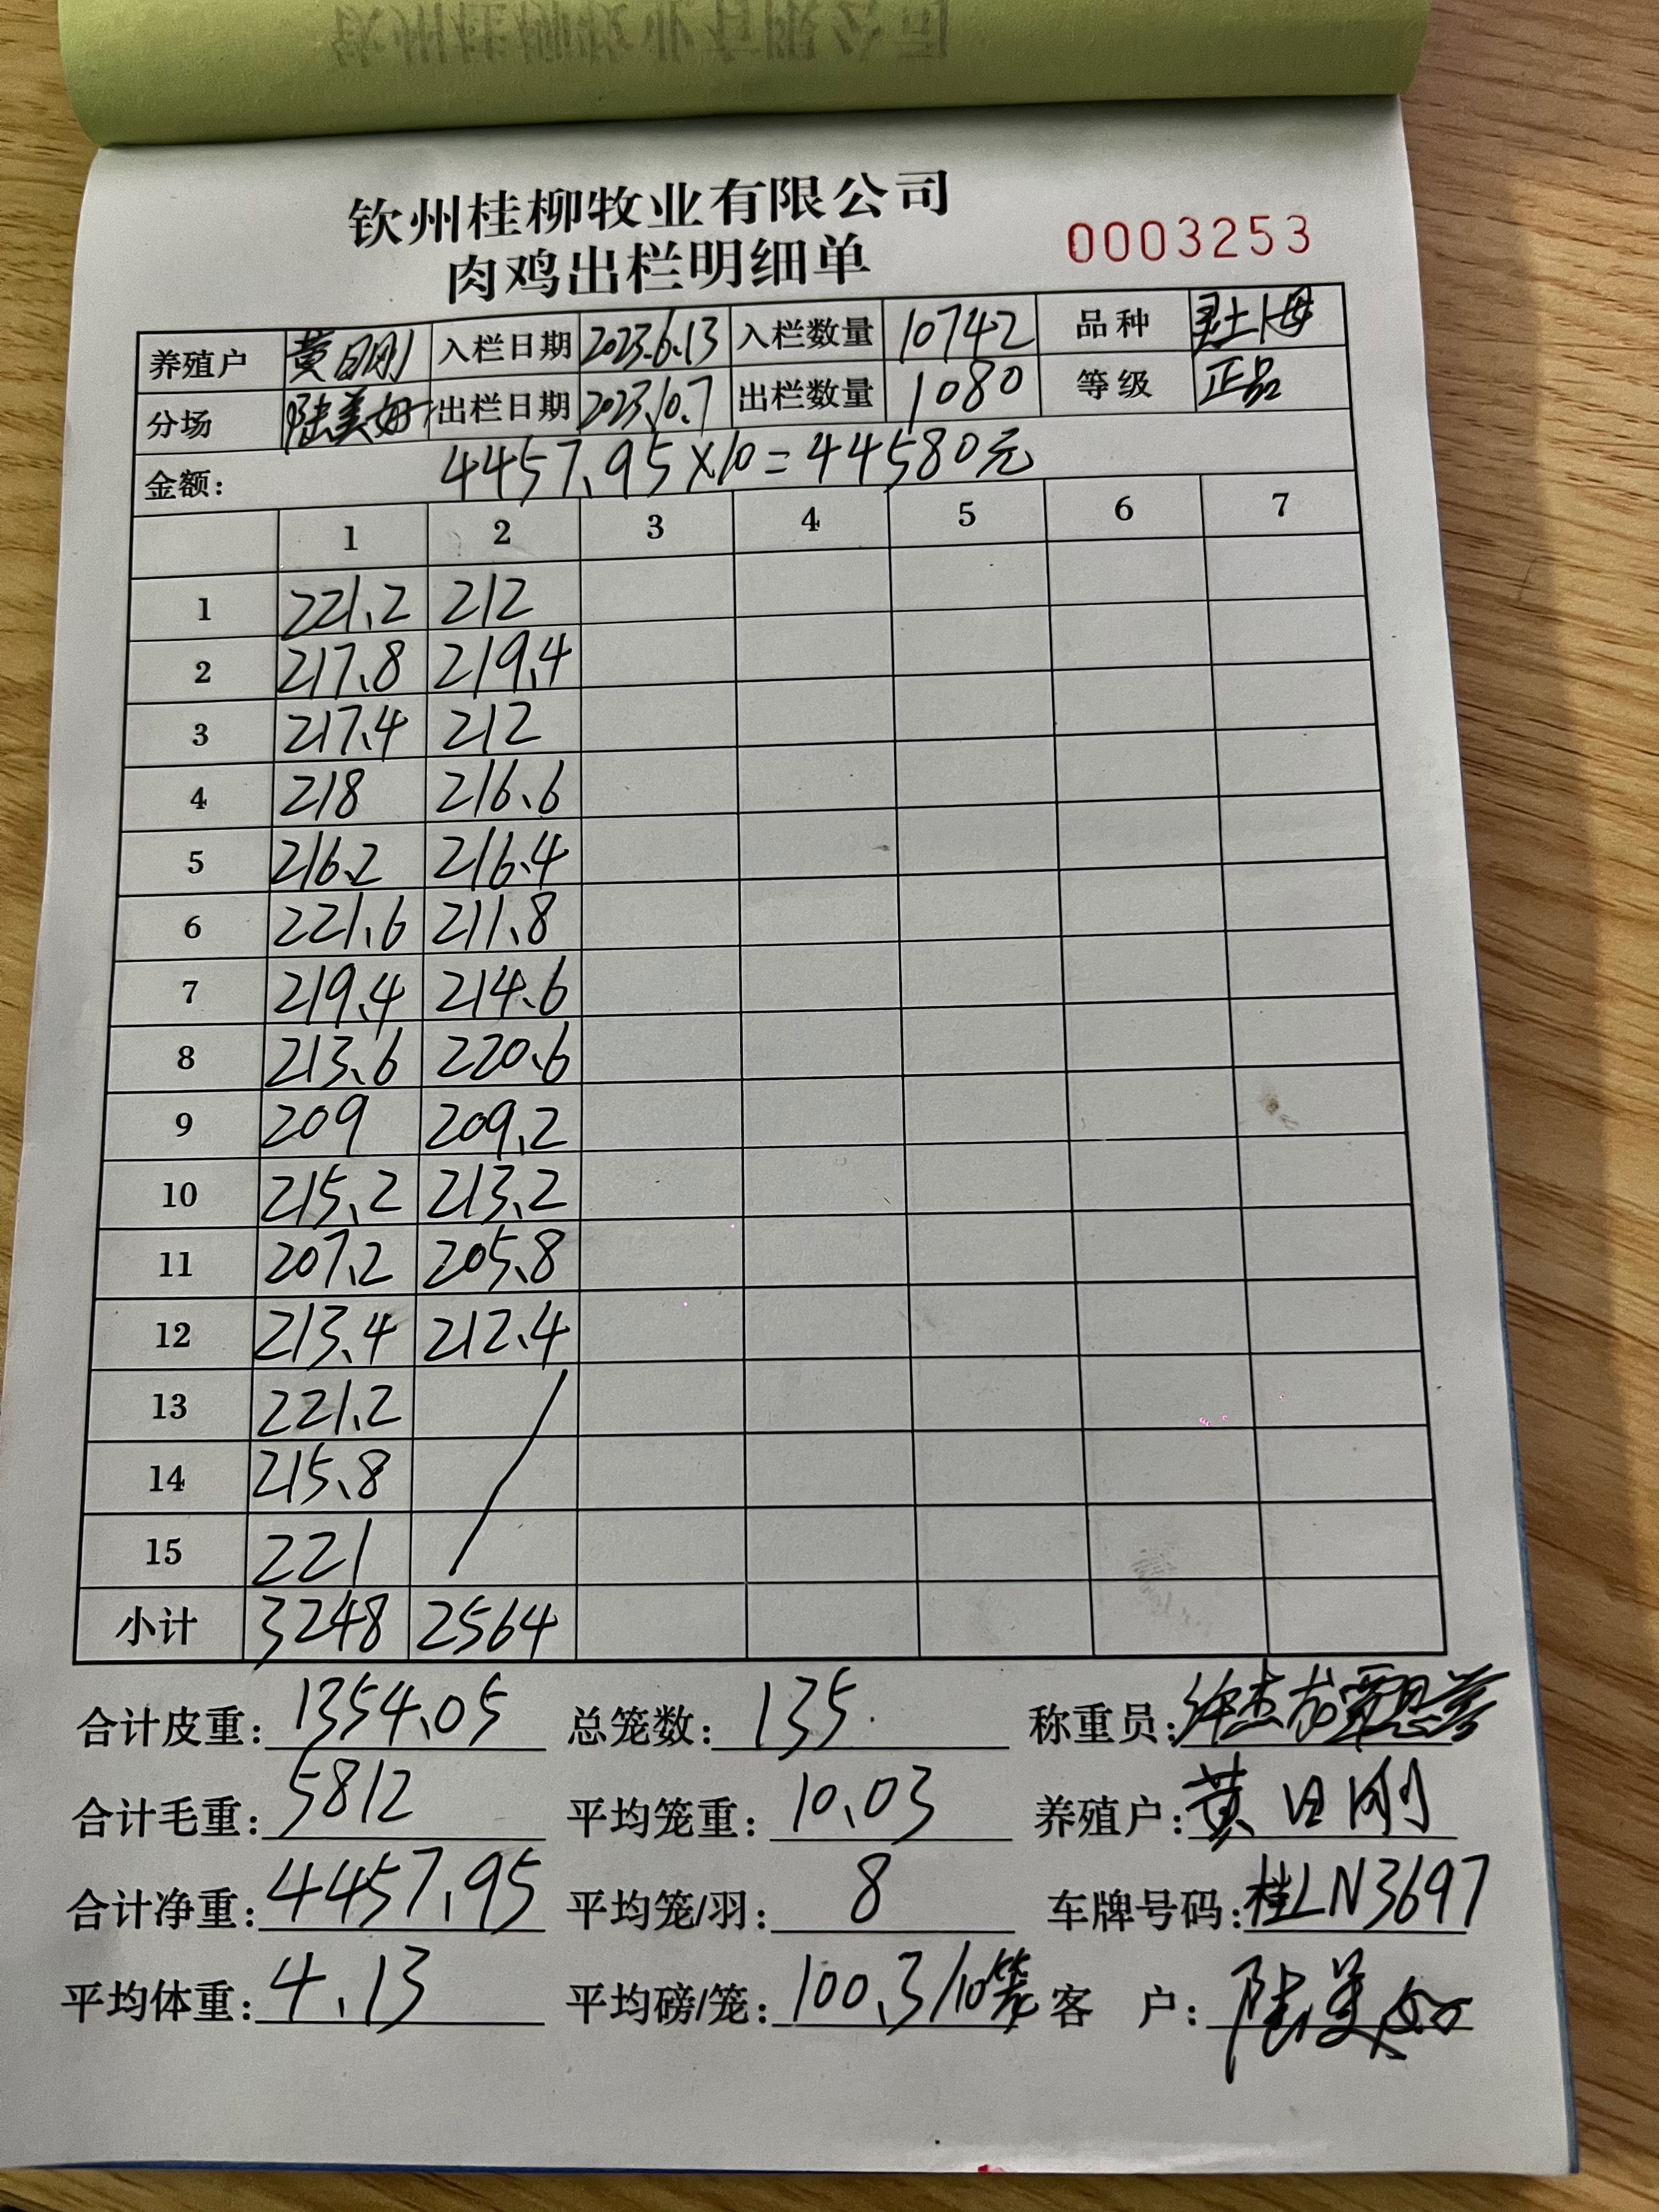 钦州桂柳牧业有限公司
肉鸡出栏明细单 0003253
养殖户 黄日刚 入栏日期 2023.6.13 入栏数量 10742 品种 土
分场 陆美 出栏日期 2023.10.7 出栏数量 1080 等级 正品
金额: 4457.95×10=44580元
1 2 3 4 5 6 7
1 221.2 212
2 217.8 219.4
3 217.4 212
4 218 216.6
5 216.2 216.4
6 221.6 211.8
7 219.4 214.6
8 213.6 220.6
9 209 209.2
10 215.2 213.2
11 207.2 205.8
12 213.4 212.4
13 221.2
14 215.8
15 221
小计 3248 2564
合计皮重: 1354.05 总笼数: 135 称重员:
合计毛重: 5812 平均笼重: 10.03 养殖户: 黄日刚
合计净重: 4457.95 平均笼/羽: 8 车牌号码: 桂LN3697
平均体重: 4.13 平均磅/笼: 100.3/10笼 客 户: 陆美